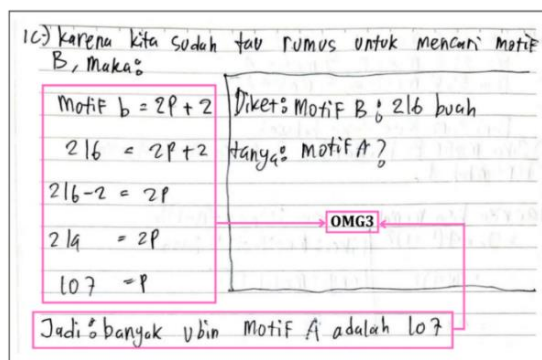 1c.) karena kita sudah tau rumus untuk mencari motif
B, maka:
motif b = 2P + 2
216 = 2P + 2
216-2 = 2P
214 = 2P
107 = P
Diket: Motif B : 216 buah
tanya: motif A?
OMG3
Jadi: banyak ubin motif A adalah 107